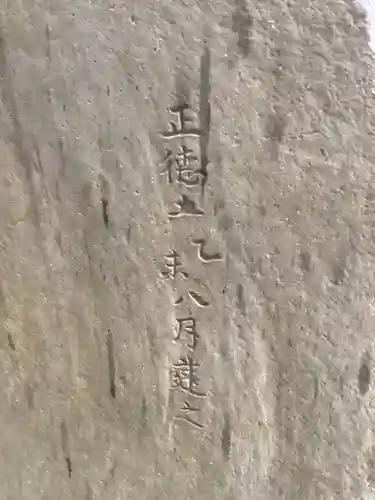 正徳五乙未八月建之